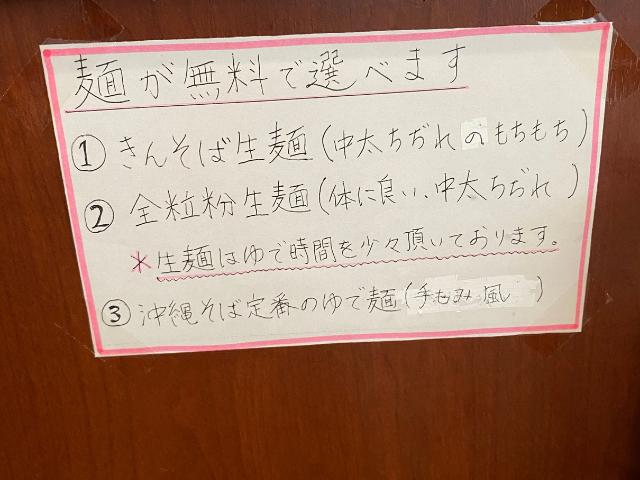 麺が無料で選べます
① きんそば生麺(中太ちぢれのもちもち)
② 全粒粉生麺(体に良い、中太ちぢれ)
*生麺はゆで時間を少々頂いております。
③ 沖縄そば定番のゆで麺(手もみ風)